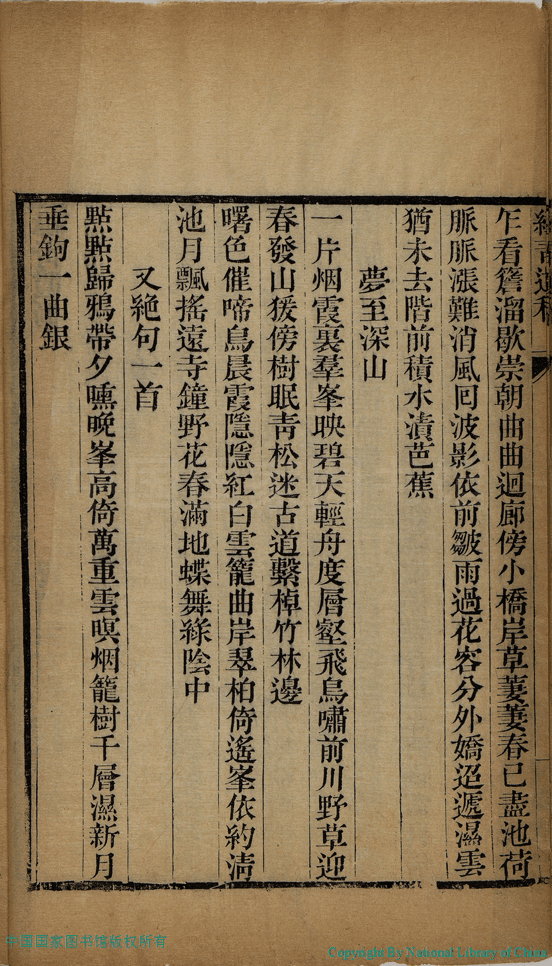 乍看簷溜歇崇朝曲曲迴廊傍小橋岸草萋萋春已盡池荷
脈脈漲難消風回波影依前皺雨過花容分外嬌迢遞濕雲
猶未去階前積水漬芭蕉
夢至深山
一片烟霞裏羣峯映碧天輕舟度層壑飛鳥嘯前川野草迎
春發山猨傍樹眠青松迷古道繫棹竹林邊
曙色催啼鳥晨霞隱隱紅白雲籠曲岸翠柏倚遙峯依約清
池月飄搖遠寺鐘野花春滿地蝶舞綠陰中
又絕句一首
點點歸鴉帶夕曛晚峯高倚萬重雲暝烟籠樹千層濕新月
垂鉤一曲銀
中国国家图书馆版权所有
Copyright By National Library of China